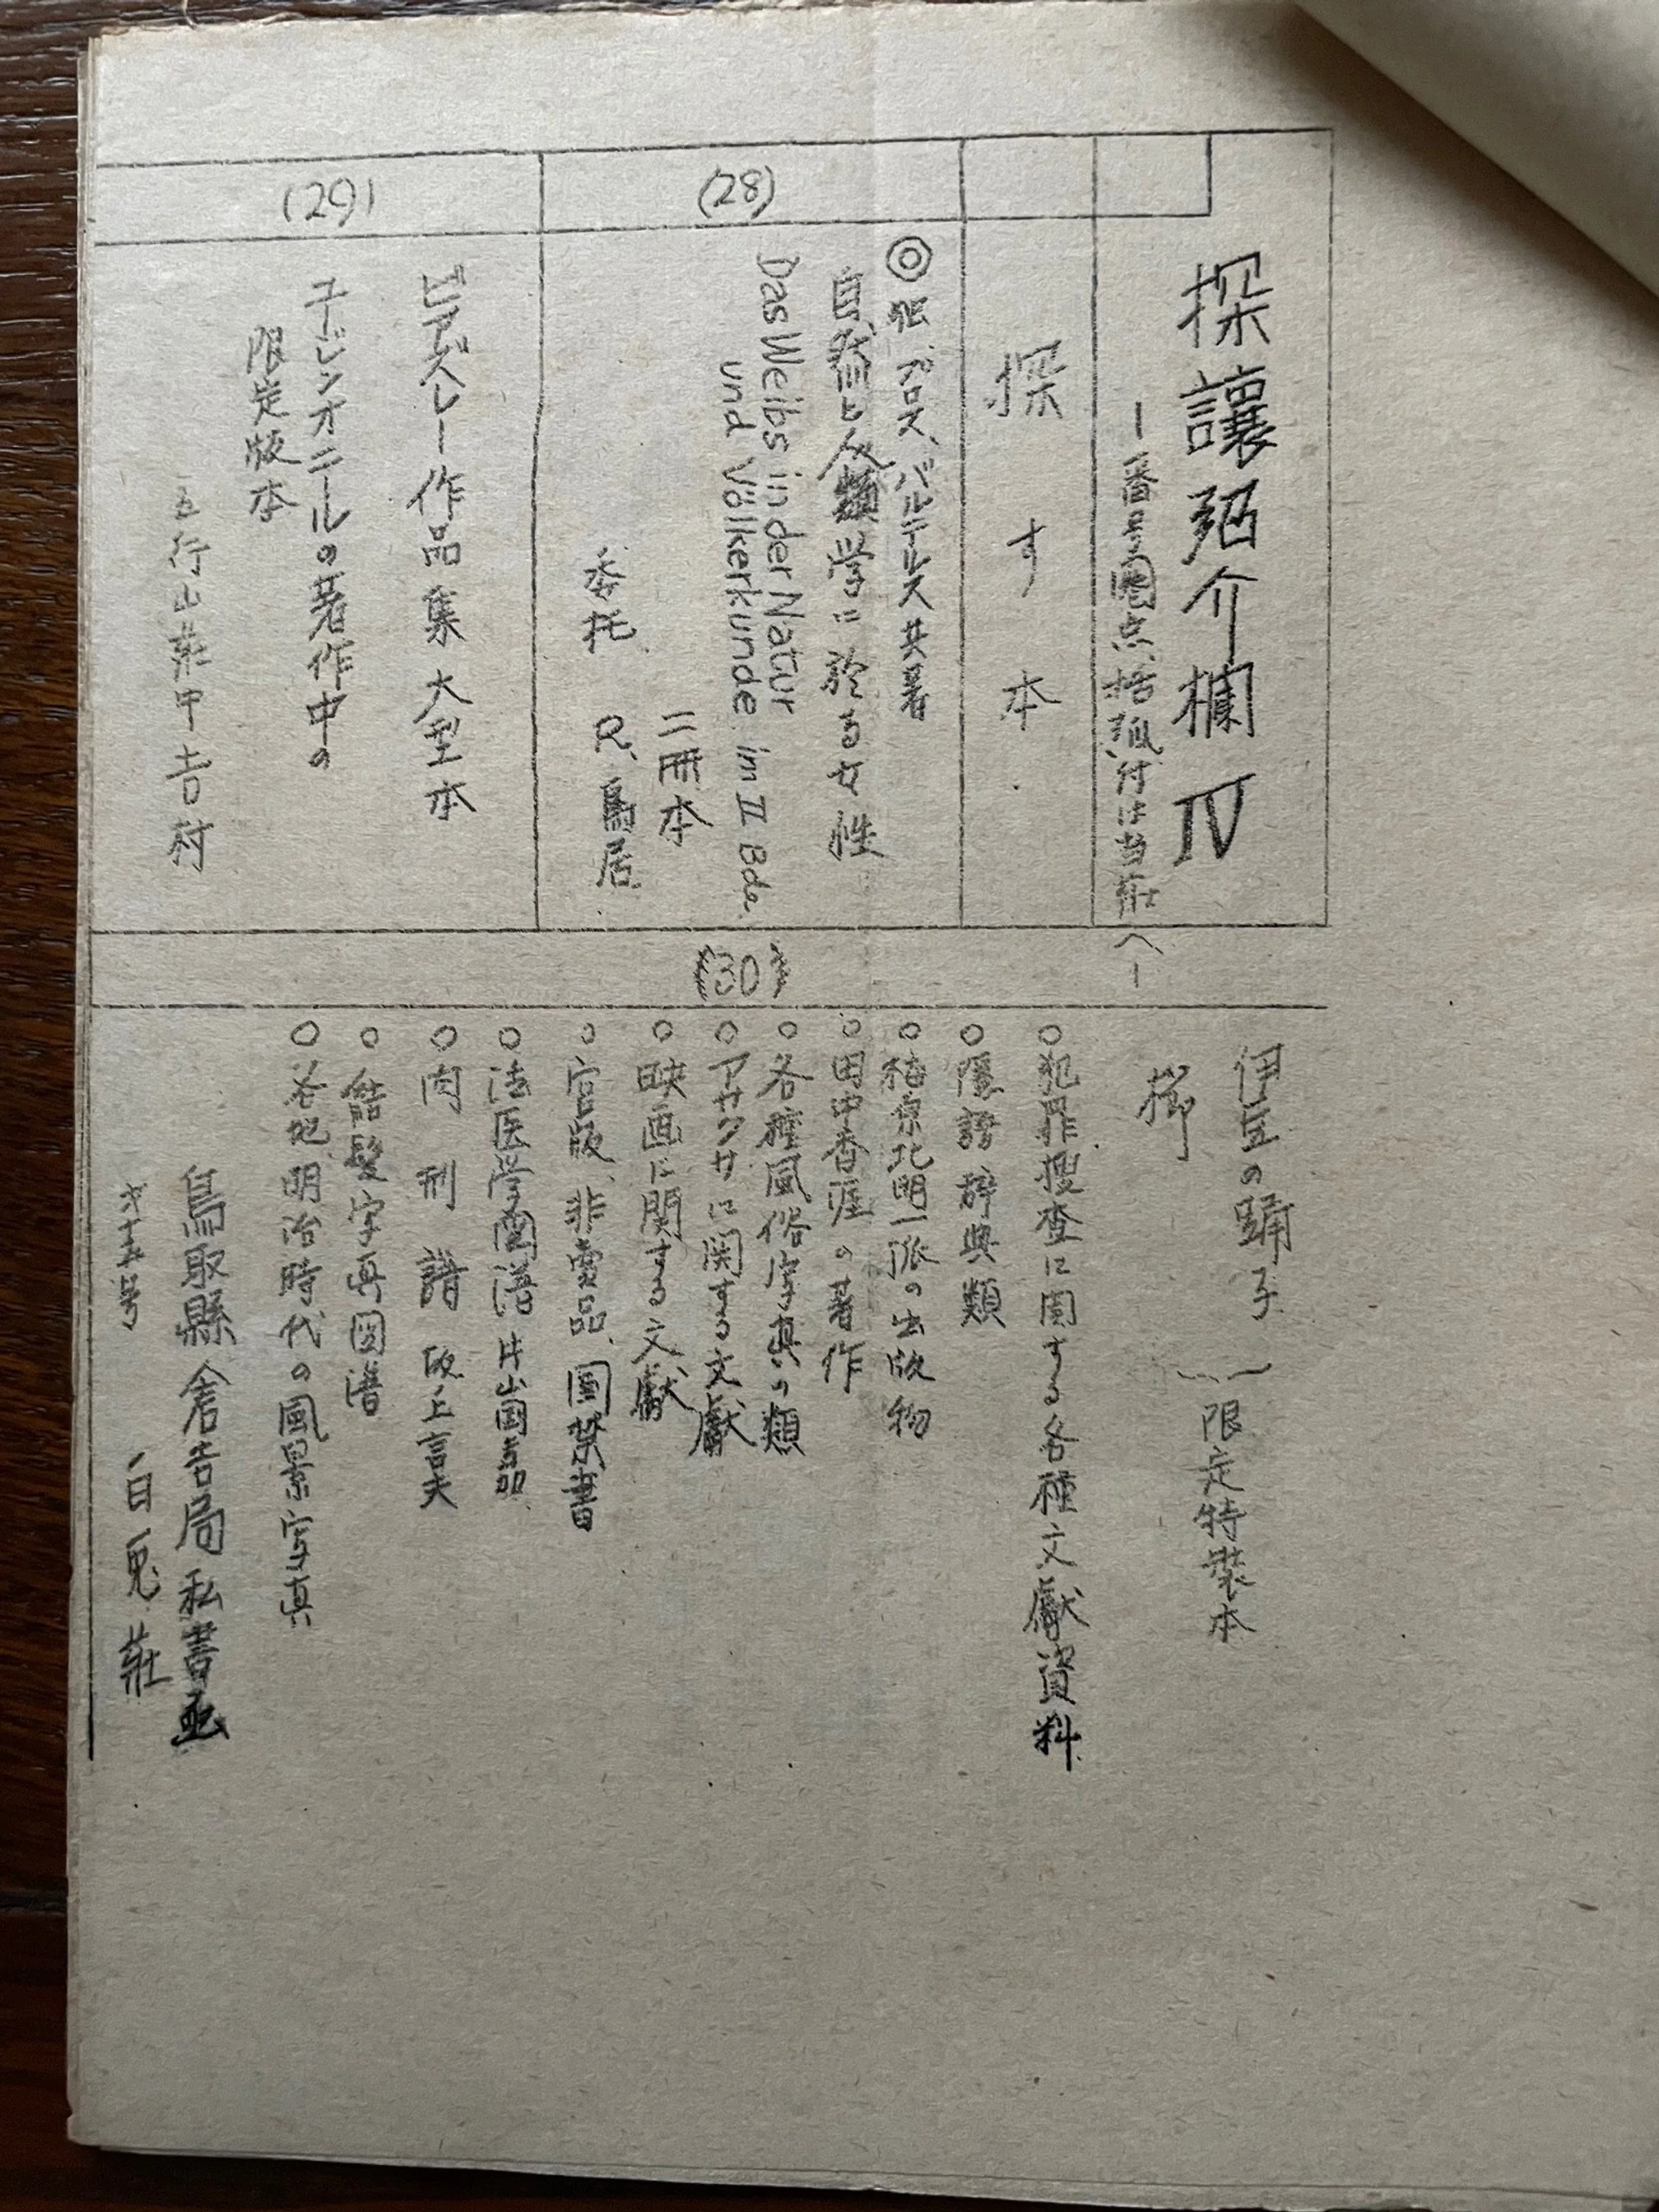 探讓紹介欄 Ⅳ
ー番号圏点括弧付は当莊へー
探す本
(28)
◎独、プロス、バルテルス共著
自然と人類学に於る女性
Das Weibs in der Natur
und Völkerkunde. im Ⅱ Bde.
二冊本
委托 R、鳥居
(29)
ビアズレー作品集 大型本
ユージンオニールの著作中の
限定版本
五行山莊甲吉村
伊豆の踊子
限定特裝本
(30)
○犯罪搜査に関する各種文獻資料
○隱語辞典類
○梅原北明一派の出版物
○田中香涯の著作
○各種風俗写真の類
○アサクサに関する文獻
○映画に関する文獻
○官版、非賣品、国禁書
○法医学図譜 片山国嘉
○肉刑譜 坂上言夫
○結髪字真図譜
○各地明治時代の風景写真
鳥取縣倉吉局私書函
才十五号
白兎莊